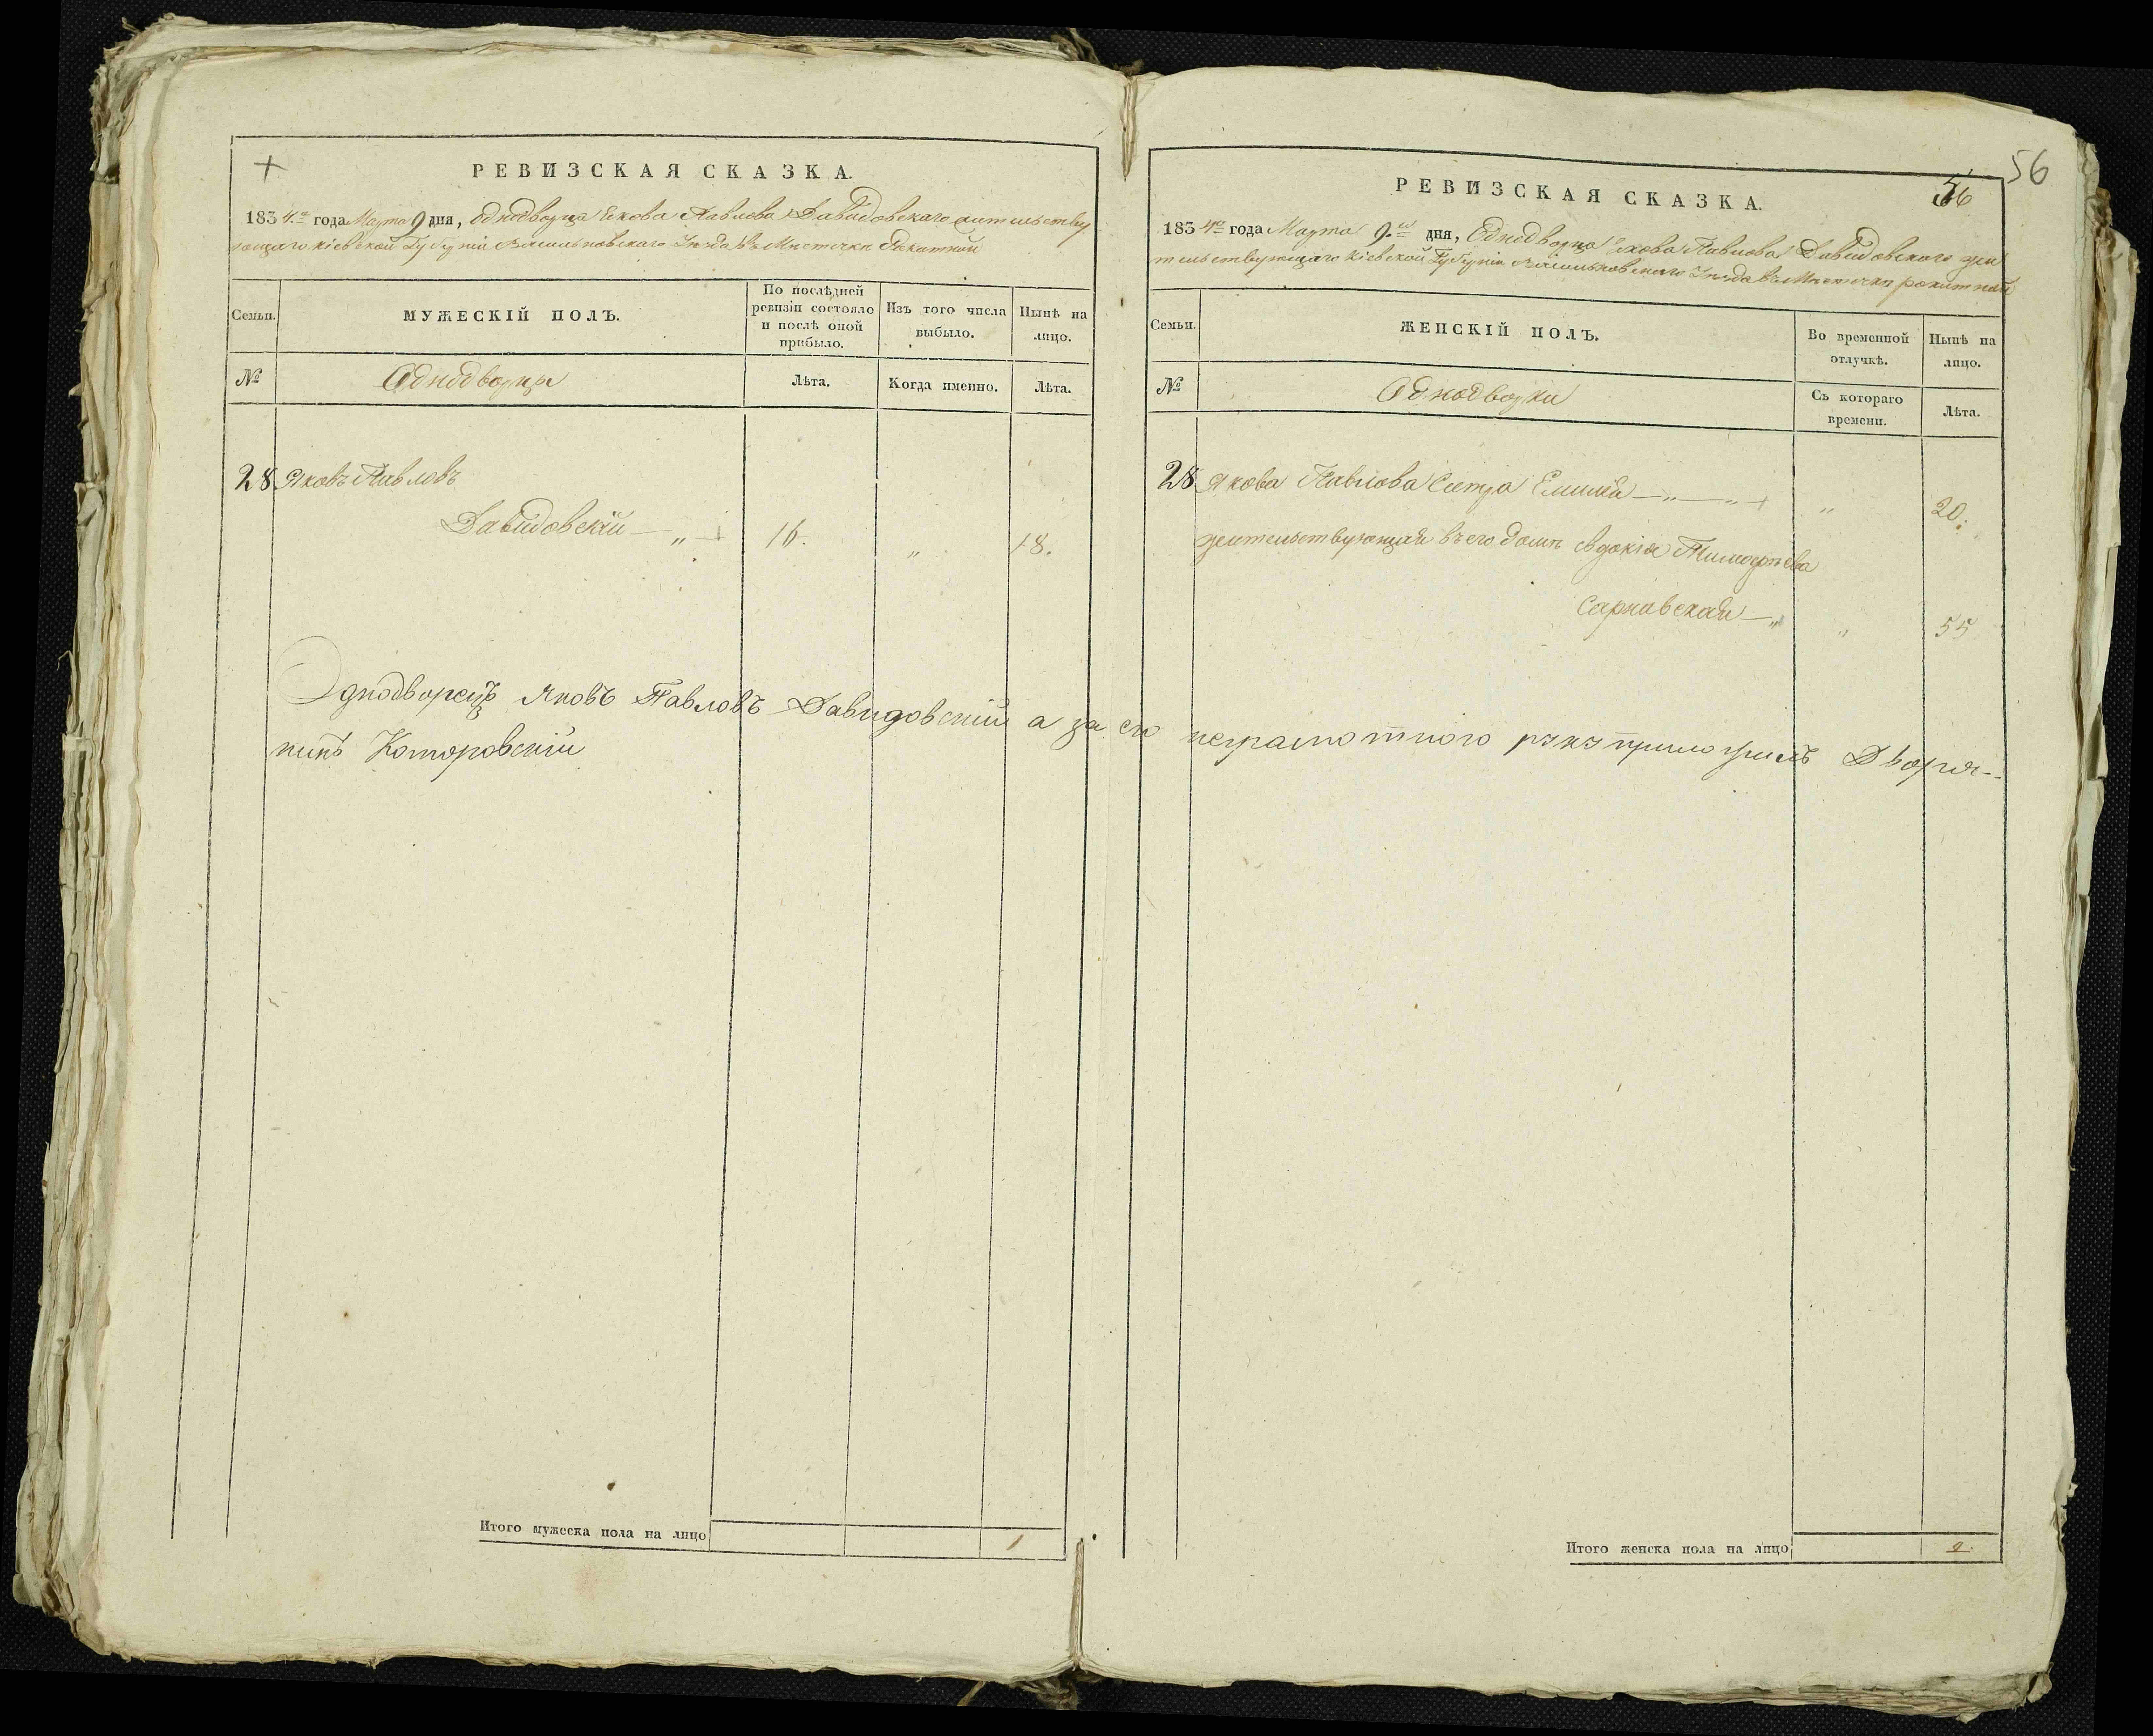 РЕВИЗСКАЯ СКАЗКА.
1834.го года Марта 9 дня, Однодворца Якова Павлова Давидовскаго жительству
ющаго кіевской Губерніи Васильковскаго Уѣзда въ Мѣстечкѣ Рокитной
Семьи.
МУЖЕСКІЙ ПОЛЪ.
По послѣдней
ревизіи состояло
и послѣ оной
прибыло.
Изъ того числа
выбыло.
Нынѣ на
лицо.
№
Однодворцы
Лѣта.
Когда именно.
Лѣта.
28. Яковъ Павловъ
Давидовскій — „ 16. „ 18.
Однодворецъ Яковъ Павловъ Давидовскій а за его неграмотного руку приложилъ Дворя-
нинъ Которовскій
Итого мужеска пола на лицо 1
56
56
РЕВИЗСКАЯ СКАЗКА.
1834го года Марта 9.го дня, Однодворца Якова Павлова Давидовского жи
тельствующаго кіевской Губерніи Васильковскаго Уѣзда въ Мѣстечкѣ рокитной
Семьи.
ЖЕНСКІЙ ПОЛЪ.
Во временной
отлучкѣ.
Нынѣ на
лицо.
№
Однодворки
Съ котораго
времени.
Лѣта.
28. Якова Павлова Сестра Емилія — „ — „ „ 20.
жительствующая въ его домѣ евдокія Тимофѣева
— „ „ 55
Итого женска пола на лицо 2.